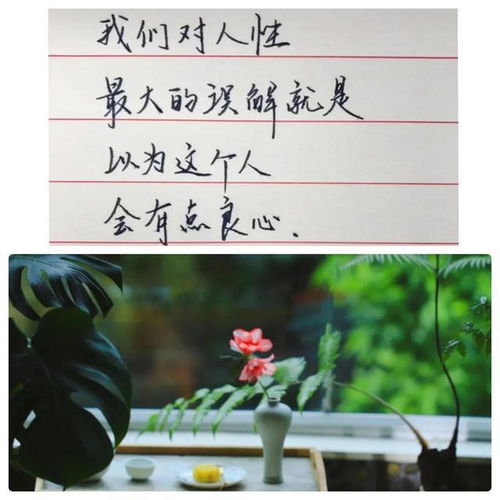 我们对人性
最大的误解就是
以为这个人
会有点良心.